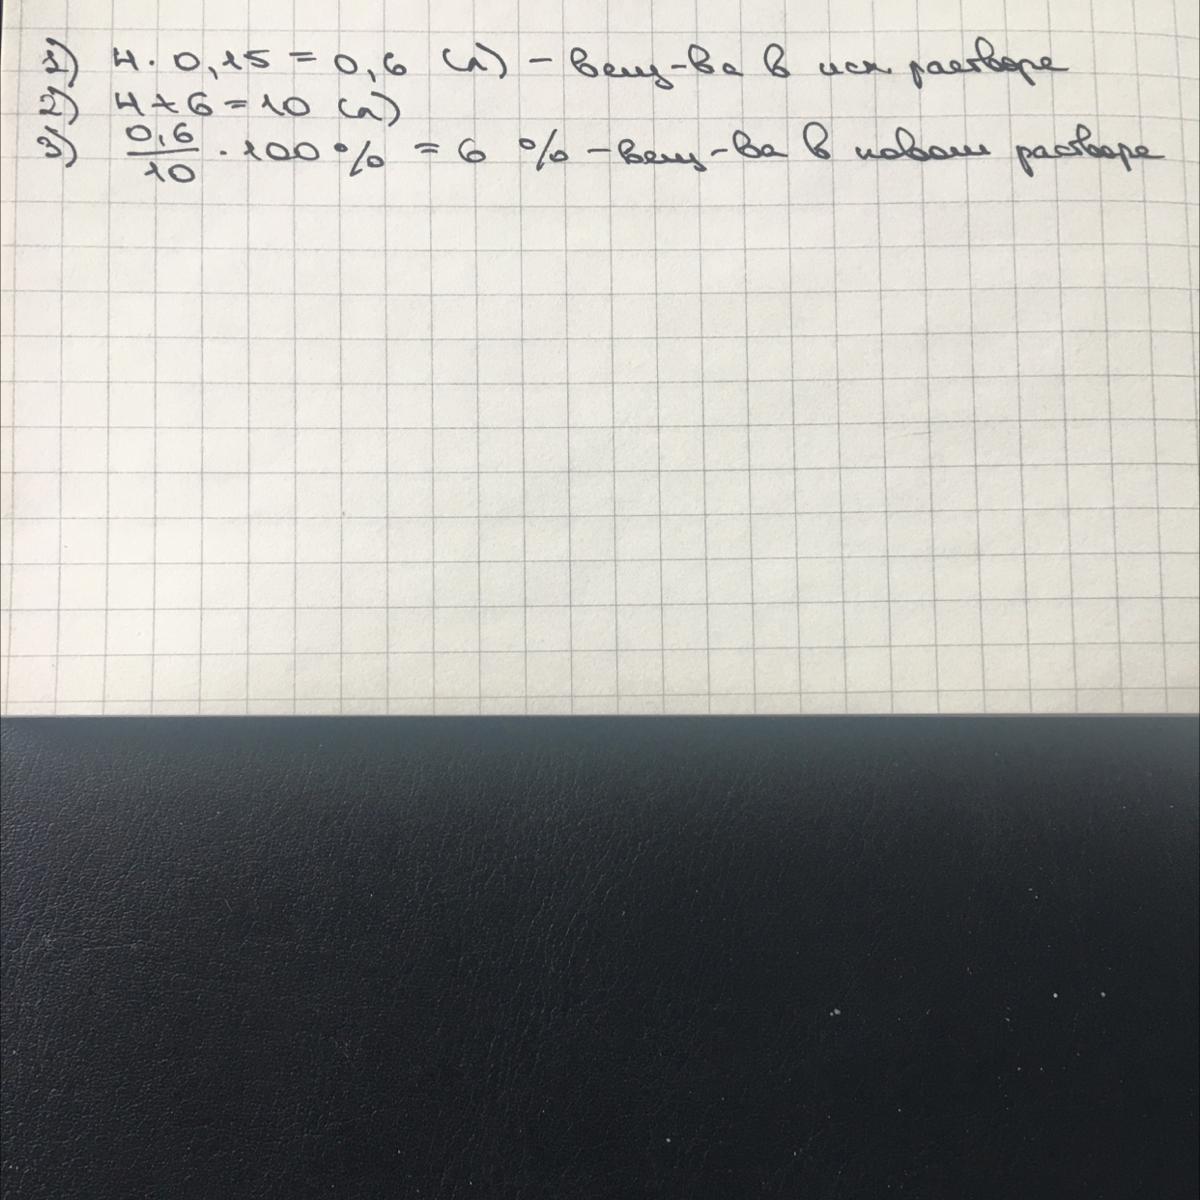 1) 4 · 0,15 = 0,6 (л) – вещ-ва в исх. растворе
2) 4 + 6 = 10 (л)
3) 0,6/10 · 100 % = 6 % – вещ-ва в новом растворе